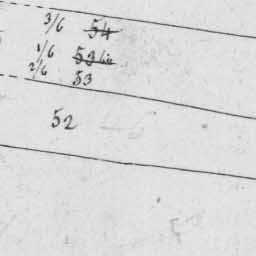 3/6 54
1/6 53 bis
2/6 53
52